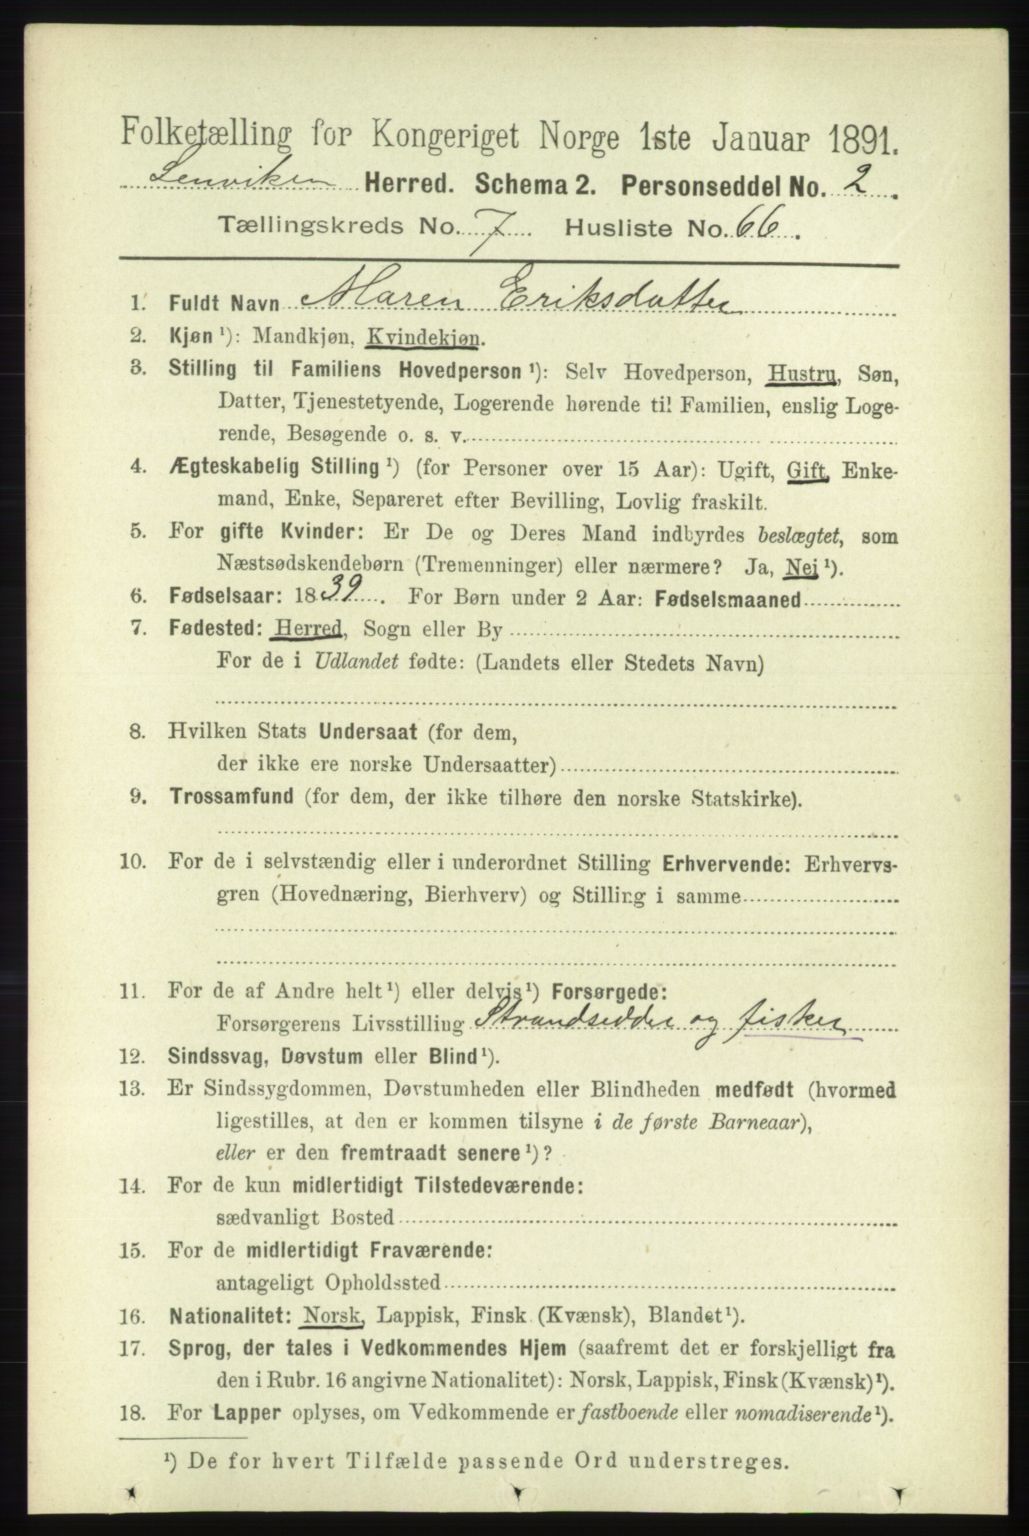 Folketælling for Kongeriget Norge 1ste Januar 1891.
Lenviken Herred. Schema 2. Personseddel No. 2.
Tællingskreds No. 7. Husliste No. 66.
1. Fuldt Navn Maren Eriksdatter
2. Kjøn ¹): Mandkjøn, Kvindekjøn.
3. Stilling til Familiens Hovedperson ¹): Selv Hovedperson, Hustru, Søn,
Datter, Tjenestetyende, Logerende hørende til Familien, enslig Loge-
rende, Besøgende o. s. v.
4. Ægteskabelig Stilling ¹) (for Personer over 15 Aar): Ugift, Gift, Enke-
mand, Enke, Separeret efter Bevilling, Lovlig fraskilt.
5. For gifte Kvinder: Er De og Deres Mand indbyrdes beslægtet, som
Næstsødskendebørn (Tremenninger) eller nærmere? Ja, Nei ¹).
6. Fødselsaar: 1839. For Børn under 2 Aar: Fødselsmaaned
7. Fødested: Herred, Sogn eller By
For de i Udlandet fødte: (Landets eller Stedets Navn)
8. Hvilken Stats Undersaat (for dem,
der ikke ere norske Undersaatter)
9. Trossamfund (for dem, der ikke tilhøre den norske Statskirke).
10. For de i selvstændig eller i underordnet Stilling Erhvervende: Erhvervs-
gren (Hovednæring, Bierhverv) og Stilling i samme
11. For de af Andre helt ¹) eller delvis ¹) Forsørgede:
Forsørgerens Livsstilling Strandsidder og fisker
12. Sindssvag, Døvstum eller Blind ¹).
13. Er Sindssygdommen, Døvstumheden eller Blindheden medfødt (hvormed
ligestilles, at den er kommen tilsyne i de første Barneaar),
eller er den fremtraadt senere ¹)?
14. For de kun midlertidigt Tilstedeværende:
sædvanligt Bosted
15. For de midlertidigt Fraværende:
antageligt Opholdssted
16. Nationalitet: Norsk, Lappisk, Finsk (Kvænsk), Blandet ¹).
17. Sprog, der tales i Vedkommendes Hjem (saafremt det er forskjelligt fra
den i Rubr. 16 angivne Nationalitet): Norsk, Lappisk, Finsk (Kvænsk) ¹).
18. For Lapper oplyses, om Vedkommende er fastboende eller nomadiserende ¹).
¹) De for hvert Tilfælde passende Ord understreges.